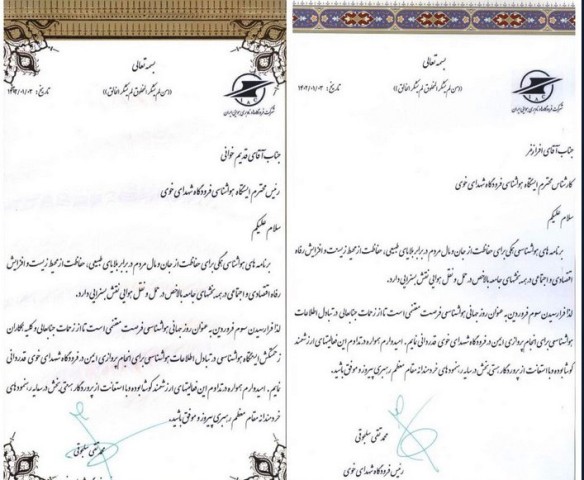 بسمه تعالی
((من لم یشکر المخلوق لم یشکر الخالق))
شرکت فرودگاه‌ها و ناوبری هوایی ایران
جناب آقای افرازفر
کارشناس محترم ایستگاه هواشناسی فرودگاه شهدای خوی
سلام علیکم
برنامه های هواشناسی همگی برای حفاظت از جان و مال مردم در برابر بلایای طبیعی، حفاظت از محیط زیست و افزایش رفاه
اقتصادی و اجتماعی در همه بخشهای جامعه بالاخص در حمل و نقل هوایی نقش بسزایی دارد.
لذا فرارسیدن سوم فروردین به عنوان روز جهانی هواشناسی فرصت مغتنمی است تا از زحمات جنابعالی در تبادل اطلاعات
هواشناسی برای انجام پروازی ایمن در فرودگاه شهدای خوی قدردانی نمایم. امیدوارم همواره در تداوم این فعالیتهای ارزشمند
کوشا بوده و با استعانت از پروردگار هستی بخش در سایه رهنمود های خردمندانه مقام معظم رهبری پیروز و موفق باشید.
محمد تقی سلجوقی
رئیس فرودگاه شهدای خوی
بسمه تعالی
((من لم یشکر المخلوق لم یشکر الخالق))
شرکت فرودگاه‌ها و ناوبری هوایی ایران
جناب آقای قدیم خوانی
رئیس محترم ایستگاه هواشناسی فرودگاه شهدای خوی
سلام علیکم
برنامه های هواشناسی همگی برای حفاظت از جان و مال مردم در برابر بلایای طبیعی، حفاظت از محیط زیست و افزایش
رفاه اقتصادی و اجتماعی در همه بخشهای جامعه بالاخص در حمل و نقل هوایی نقش بسزایی دارد.
لذا فرارسیدن سوم فروردین به عنوان روز جهانی هواشناسی فرصت مغتنمی است تا از زحمات جنابعالی و کلیه همکاران
زحمتکش ایستگاه هواشناسی در تبادل اطلاعات هواشناسی برای انجام پروازی ایمن در فرودگاه شهدای خوی قدردانی
نمایم. امیدوارم همواره در تداوم این فعالیتهای ارزشمند کوشا بوده و با استعانت از پروردگار هستی بخش در سایه رهنمود های
خردمندانه مقام معظم رهبری پیروز و موفق باشید.
محمد تقی سلجوقی